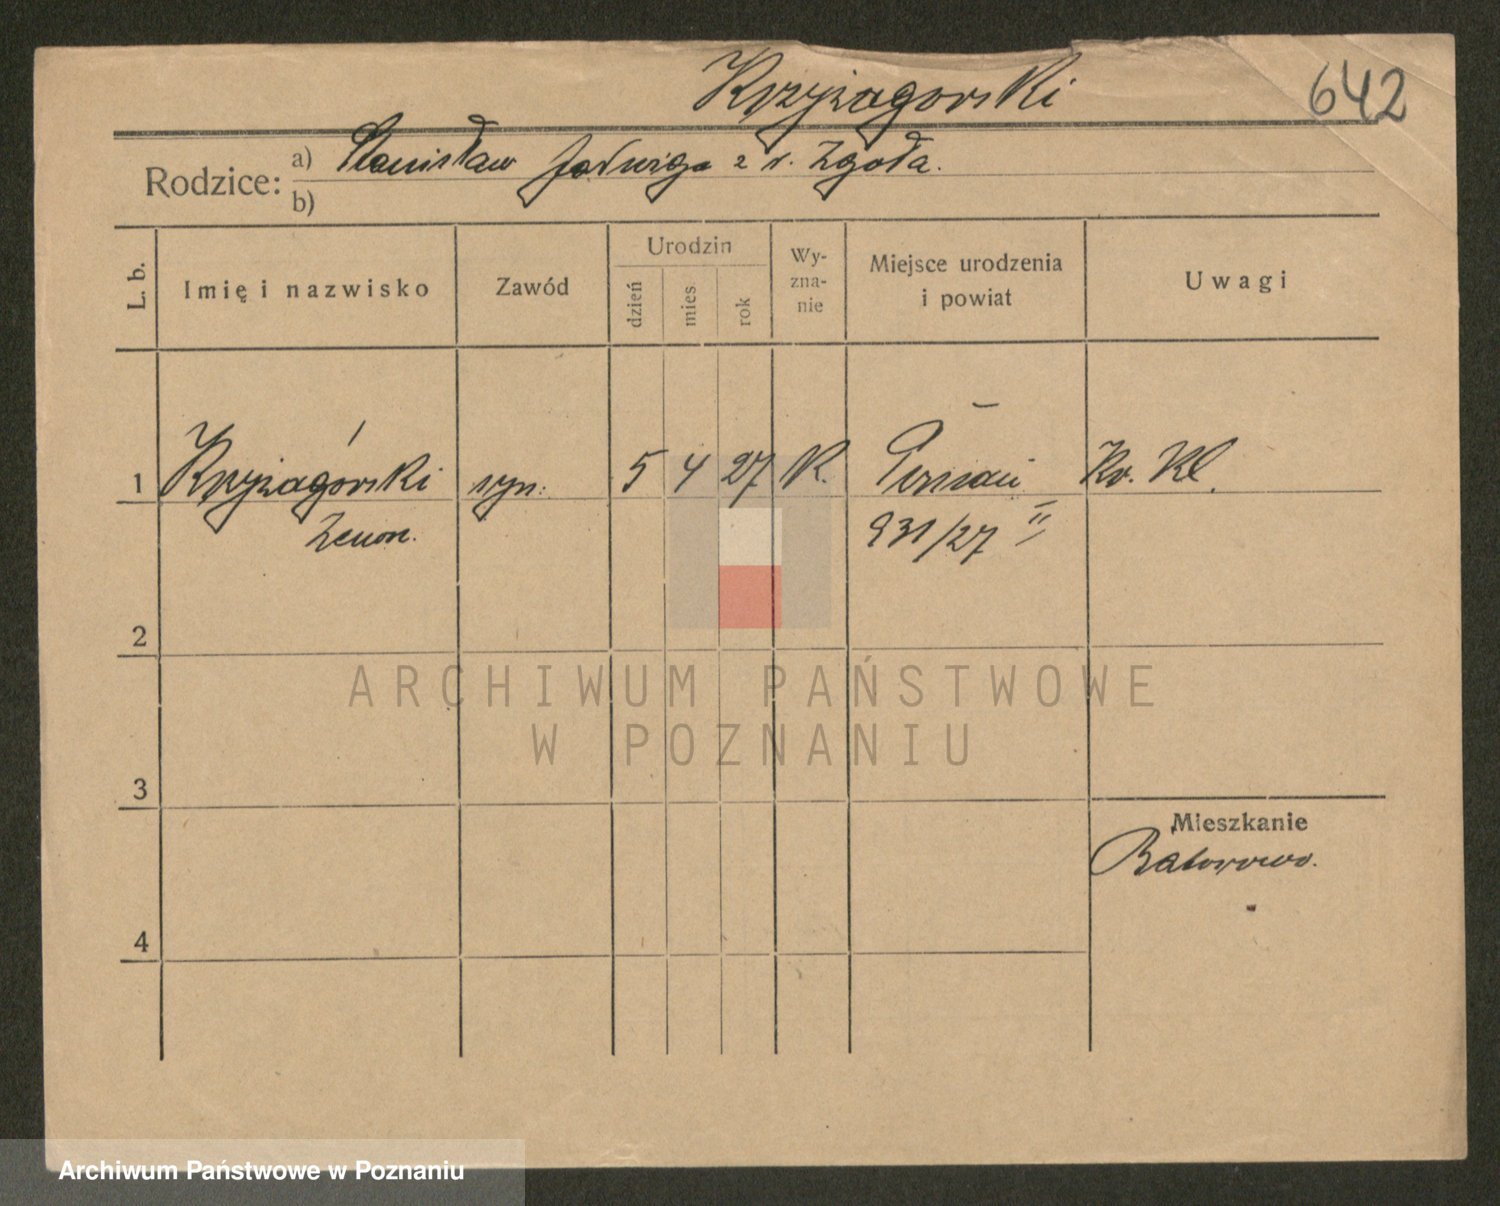 Krzyżagorski
642
Rodzice: a) Stanisław Jadwiga z d. Zgoła.
b)
L. b.
Imię i nazwisko
Zawód
Urodzin
dzień
mies
rok
Wy-
zna-
nie
Miejsce urodzenia
i powiat
Uwagi
1 Krzyżagórski syn. 5 4 27 K. Poznań
Zenon. 931/27 II
2
3
4
Mieszkanie
Batorowo.
ARCHIWUM PAŃSTWOWE
W POZNANIU
Archiwum Państwowe w Poznaniu